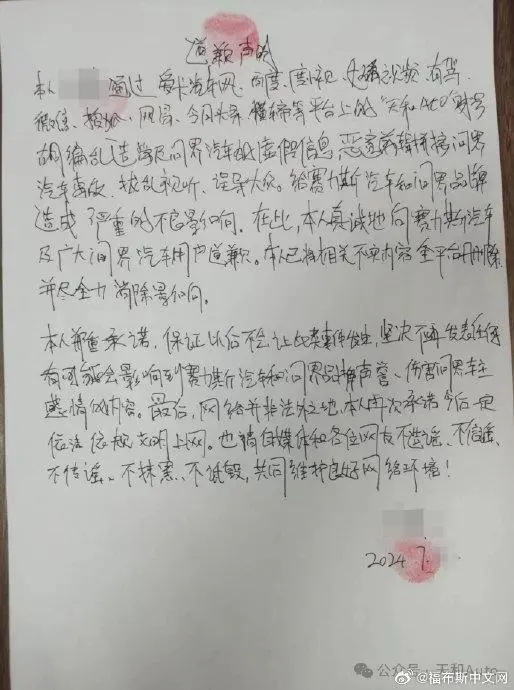 道歉声明
本人 通过爱卡汽车网、百度、度小视、好看视频、有驾、
微信、搜狐、网易、今日头条、懂车帝等平台上的"天和Auto"账号
胡编乱造发布问界汽车的虚假信息,恶意剪辑拼接问界
汽车事故,扰乱视听、误导大众。给赛力斯汽车和问界品牌
造成了严重的不良影响。在此,本人真诚地向赛力斯汽车
及广大问界汽车用户道歉。本人已将相关不实内容全平台删除
并尽全力消除影响。
本人郑重承诺,保证以后不会让此类事件发生,坚决不再发表任何
有可能会影响到赛力斯汽车和问界品牌声誉、伤害问界车主
感情的内容。最后,网络并非法外之地,本人再次承诺今后一定
依法依规文明上网。也请自媒体和各位网友不造谣、不信谣、
不传谣、不抹黑、不诋毁,共同维护良好网络环境!
2024 7.
公众号·天和Auto
@福布斯中文网